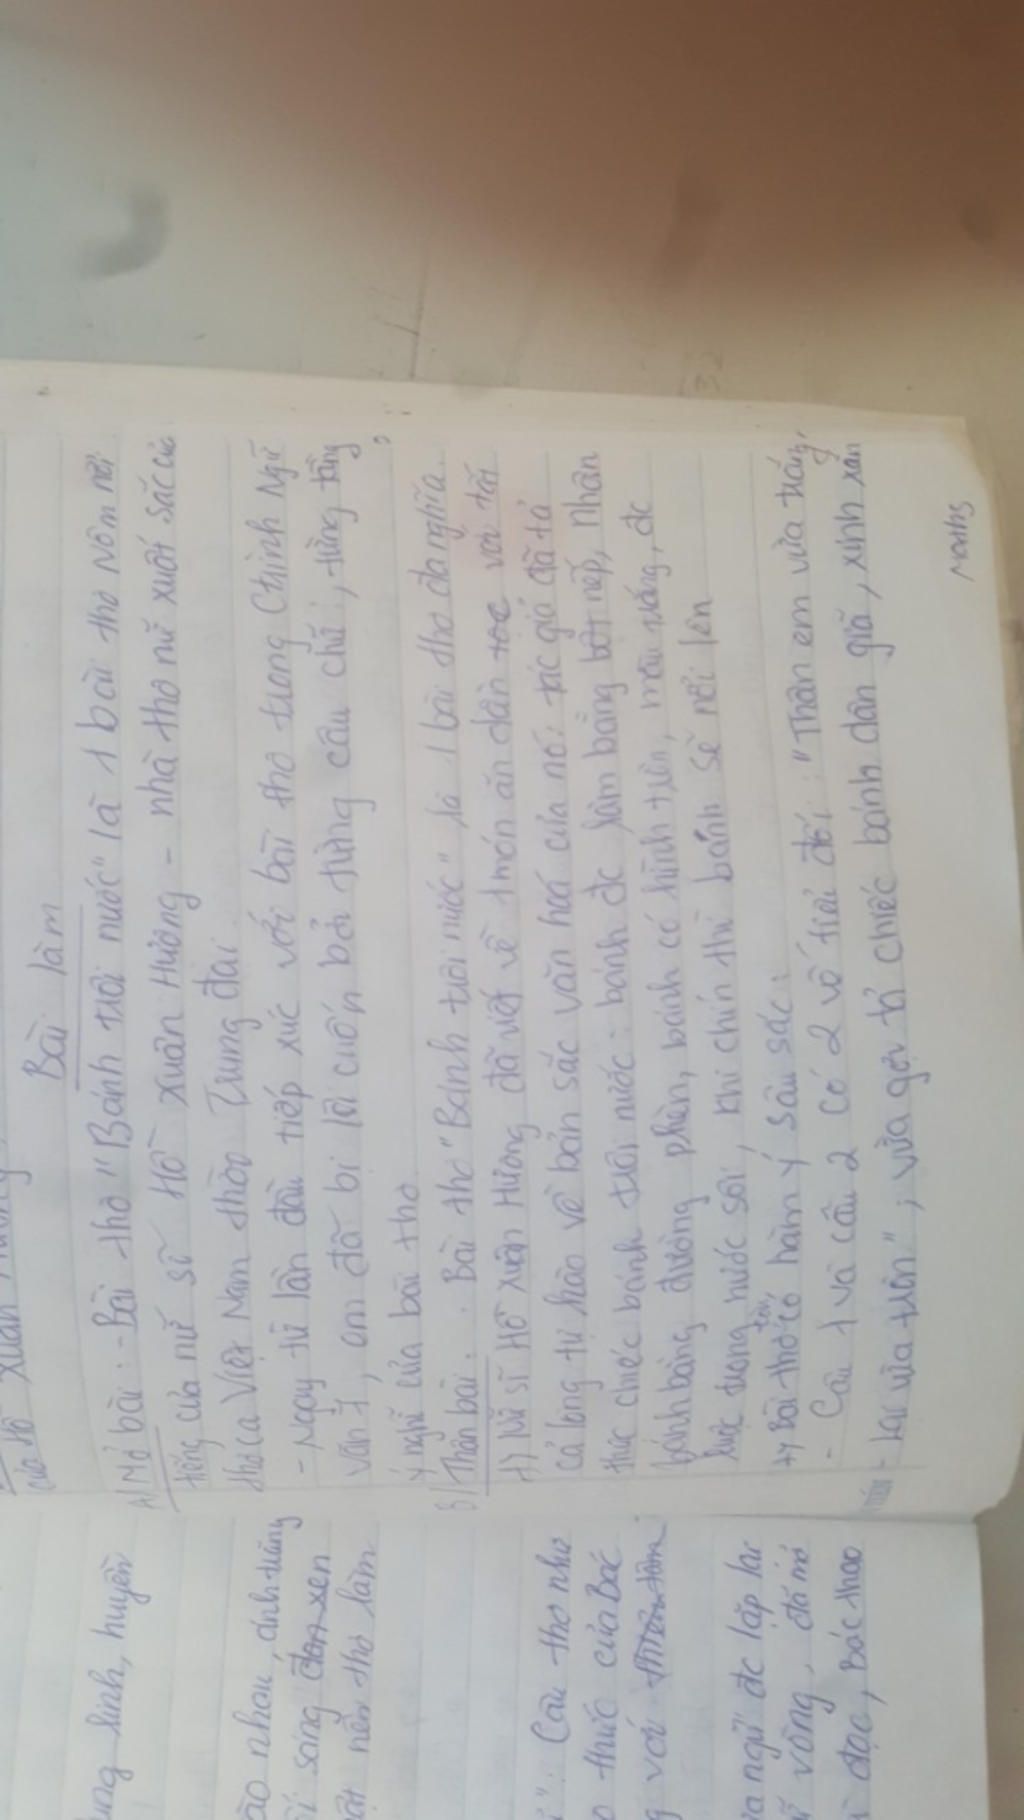 của Hồ Xuân
Bài làm
A) Mở bài: - Bài thơ "Bánh trôi nước" là 1 bài thơ Nôm nổi
tiếng của nữ sĩ Hồ Xuân Hương - nhà thơ nữ xuất sắc của
thơ ca Việt Nam thời Trung đại.
- Ngay từ lần đầu tiếp xúc với bài thơ trong Chình Ngữ
Văn 7, em đã bị lôi cuốn bởi từng câu chữ, từng tầng
ý nghĩ của bài thơ
B) Thân bài. Bài thơ "Bánh trôi nước" là 1 bài thơ đa nghĩa.
1) Nữ sĩ Hồ Xuân Hương đã viết về 1 món ăn dân tộc với tất
cả lòng tự hào về bản sắc văn hoá của nó: tác giả đã tả
thực chiếc bánh trôi nước: bánh đc làm bằng bột nếp, nhân
bánh bằng đường phèn, bánh có hình tròn, màu trắng, đc
luộc trong nước sôi, khi chín thì bánh sẽ nổi lên
Bài thơ có hàm ý sâu sắc:
- Câu 1 và câu 2 có 2 vế tiểu đối: "Thân em vừa trắng,
- lại vừa tròn"; vừa gợi tả chiếc bánh dân giã, xinh xắn
Maths
linh, huyền
nhau, ánh trăng
sáng đan xen
nên thơ làm
". Câu thơ như
thức của Bác
với
ngữ đc lặp lại
vòng, đã mở
đạc, Bác thao